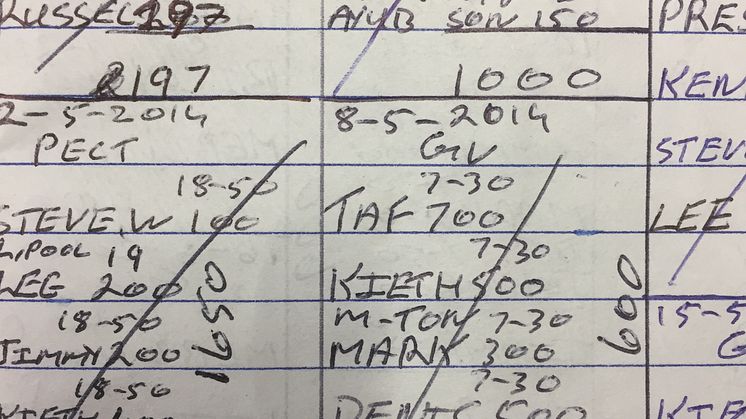 RUSSEL 197
2197
2-5-2014
PECT
18-50
STEVE.W 100
L,POOL 19
LEE 200
18-50
JIMMY 200
1650
18-50
AYUB SON 150
1000
8-5-2014
GV
7-30
TAF 700
7-30
KIETH 500
M-TON 7-30
MARK 300
600
7-30
DENIS 500
PRES
KEN
STEV
LEE
15-5
G